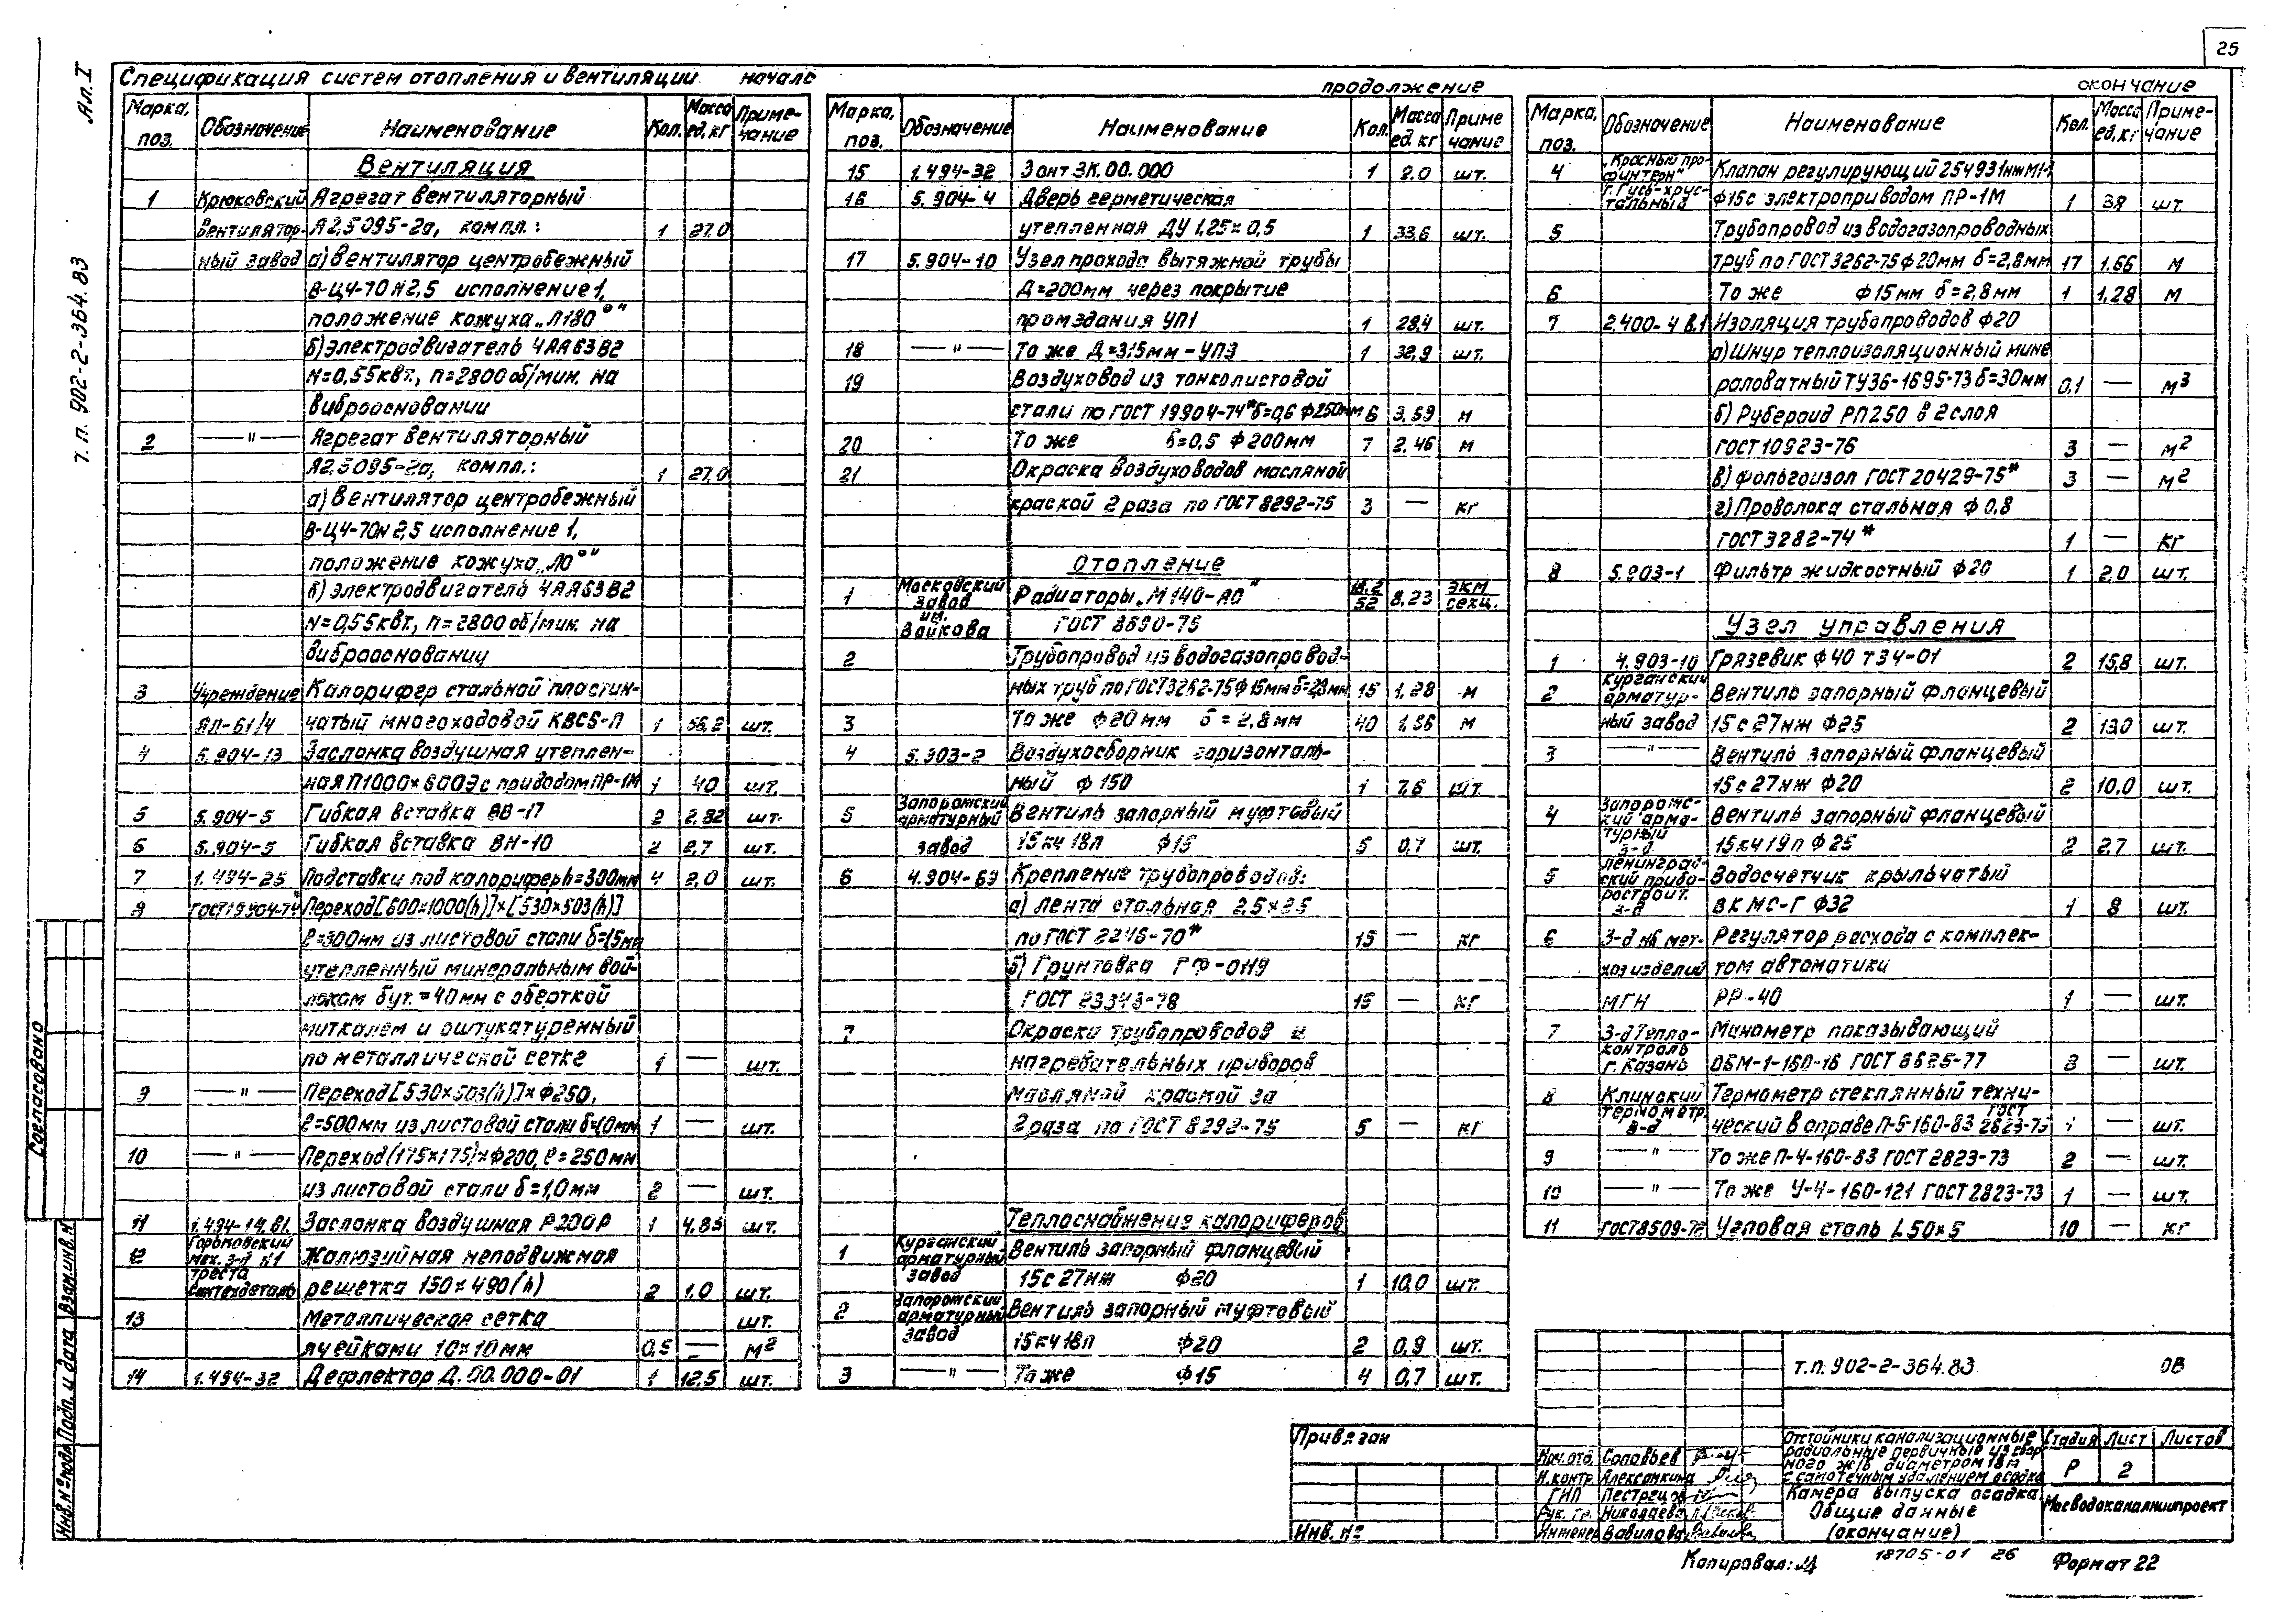 25
Ал. I
Т. П. 902-2-364.83
Спецификация систем отопления и вентиляции начало
Марка, поз. Обозначение Наименование Кол. Масса ед, кг Приме-чание
Вентиляция
1 Крюковский Агрегат вентиляторный
вентилятор- А2,5 095-2а, компл.: 1 27.0
ный завод а) Вентилятор центробежный
В-Ц4-70 №2,5 исполнение 1,
положение кожуха „Л180°"
б) электродвигатель 4АА63В2
N=0,55квт., n=2800 об/мин. на
виброосновании
2 —"— Агрегат вентиляторный
А2,5 095-2а, компл.: 1 27,0
а) Вентилятор центробежный
В-Ц4-70 №2,5 исполнение 1,
положение кожуха „Л0°"
б) электродвигатель 4АА63В2
N=0,55квт., n=2800 об/мин. на
виброосновании
3 Учреждение Калорифер стальной пластин-
ЯЛ-61/4 чатый многоходовой КВС5-П 1 56,2 шт.
4 5.904-13 Заслонка воздушная утеплен-
ная П1000×600Э с приводом ПР-1М 1 40 шт.
5 5.904-5 Гибкая вставка ВВ-17 2 2,82 шт.
6 5.904-5 Гибкая вставка ВН-10 2 2,7 шт.
7 1.494-25 Подставки под калорифер h=300мм 4 2,0 шт.
8 ГОСТ 19904-74* Переход [600×1000(h)]×[530×503(h)]
ℓ=300мм из листовой стали δ=1,5мм
утепленный минеральным вой-
локом δут.=40мм с оберткой
миткалем и оштукатуренный
по металлической сетке 1 — шт.
9 —"— Переход [530×503(h)]×ф250,
ℓ=500мм из листовой стали δ=1,0мм 1 — шт.
10 —"— Переход (175×175)×ф200, ℓ=250мм
из листовой стали δ=1,0мм 2 — шт.
11 1.494-14.81. Заслонка воздушная Р200Р 1 4.85 шт.
12 мех. з-д №1 треста Сантехдеталь Жалюзийная неподвижная
решетка 150×490(h) 2 1.0 шт.
13 Металлическая сетка шт.
ячейками 10×10мм 0,5 — м²
14 1.494-32 Дефлектор Д.00.000-01 1 12,5 шт.
продолжение
Марка, поз. Обозначение Наименование Кол. Масса ед. кг Приме чание
15 1.494-32 Зонт ЗК.00.000 1 2.0 шт.
16 5.904-4 Дверь герметическая
утепленная ДУ 1,25×0,5 1 33,6 шт.
17 5.904-10 Узел прохода вытяжной трубы
Д=200мм через покрытие
промздания УП1 1 28,4 шт.
18 —"— То же Д=315мм-УП3 1 32,9 шт.
19 Воздуховод из тонколистовой
стали по ГОСТ 19904-74* δ=0,6 ф250мм 6 3,69 м
20 То же δ=0,5 ф200мм 7 2,46 м
21 Окраска воздуховодов масляной
краской 2 раза по ГОСТ 8292-75 3 — кг
Отопление
1 Московский завод им. Войкова Радиаторы „М140-АО" 18,2/52 8,23 экм/секц.
ГОСТ 8690-75
2 Трубопровод из водогазопровод-
ных труб по ГОСТ 3262-75 ф15мм δ=2,8мм 15 1,28 м
3 То же ф20мм δ=2,8мм 40 1,66 м
4 5.903-2 Воздухосборник горизонталь-
ный ф150 1 7,6 шт.
5 Запорожский арматурный Вентиль запорный муфтовый
завод 15кч18п ф15 5 0,7 шт.
6 4.904-69 Крепление трубопроводов:
а) Лента стальная 2,5×25
по ГОСТ 2246-70* 15 — кг
б) Грунтовка ГФ-0119
ГОСТ 23343-78 15 — кг
7 Окраска трубопроводов и
нагревательных приборов
масляной краской за
2 раза по ГОСТ 8292-75 5 — кг
Теплоснабжение калориферов
1 Курганский арматурный завод Вентиль запорный фланцевый
15с27нж ф20 1 10,0 шт.
2 Запорожский арматурный завод Вентиль запорный муфтовый
15кч18п ф20 2 0,9 шт.
3 —"— То же ф15 4 0,7 шт.
окончание
Марка, поз. Обозначение Наименование Кол. Масса ед, кг Приме-чание
4 „Красный про-финтерн" г. Гусь-хрус-тальный Клапан регулирующий 25ч931нжМ1-1
ф15 с электроприводом ПР-1М 1 38 шт.
5 Трубопровод из водогазопроводных
труб по ГОСТ 3262-75 ф20мм δ=2,8мм 17 1.66 м
6 То же ф15мм δ=2,8мм 1 1,28 м
7 2.400-4 В.1 Изоляция трубопроводов ф20
а) Шнур теплоизоляционный мине
раловатный ТУ36-1695-73 δ=30мм 0,1 — м³
б) Рубероид РП250 в 2 слоя
ГОСТ 10923-76 3 — м²
в) Фольгоизол ГОСТ 20429-75* 3 — м²
г) Проволока стальная ф0,8
ГОСТ 3282-74* 1 — кг
8 5.903-1 Фильтр жидкостный ф20 1 2,0 шт.
Узел управления
1 4.903-10 Грязевик ф40 Т34-01 2 15,8 шт.
2 Курганский арматур- Вентиль запорный фланцевый
ный завод 15с27нж ф25 2 13,0 шт.
3 —"— Вентиль запорный фланцевый
15с27нж ф20 2 10,0 шт.
4 Запорожс-кий арма-турный з-д Вентиль запорный фланцевый
15кч19п ф25 2 2,7 шт.
5 Ленинград-ский прибо-ростроит. з-д Водосчетчик крыльчатый
ВКМС-Г ф32 1 8 шт.
6 З-д нб мет- Регулятор расхода с комплек-
хоз изделий том автоматики
МГН РР-40 1 — шт.
7 З-д Тепло-контроль г. Казань Манометр показывающий
ОБМ-1-160-16 ГОСТ 8625-77 3 — шт.
8 Клинский термометр. з-д Термометр стеклянный техни-
ческий в оправе П-5-160-83 ГОСТ 2823-73 1 — шт.
9 —"— То же П-4-160-83 ГОСТ 2823-73 2 — шт.
10 —"— То же У-4-160-121 ГОСТ 2823-73 1 — шт.
11 ГОСТ 8509-72 Угловая сталь L50×5 10 — кг
Согласовано
Инв. № подл. Подп. и дата Взам. инв. №
Привязан
Инв. №
т.п. 902-2-364.83 ОВ
Нач. отд. Соловьев
Н. контр. Алексанкина
ГИП Пестрецов
Рук. гр. Николаева
Инженер Вавилова
Отстойники канализационные
радиальные первичные из сбор
ного ж/б, диаметром 18м
с самотечным удалением осадка
Камера выпуска осадка
Общие данные
(окончание)
Стадия Лист Листов
Р 2
Мосводоканалниипроект
Копировал:
18705-01 26
Формат 22